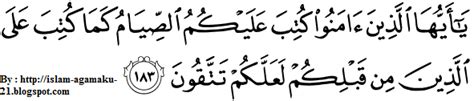 يَٰٓأَيُّهَا ٱلَّذِينَ ءَامَنُوا۟ كُتِبَ عَلَيْكُمُ ٱلصِّيَامُ كَمَا كُتِبَ عَلَى
ٱلَّذِينَ مِن قَبْلِكُمْ لَعَلَّكُمْ تَتَّقُونَ ١٨٣
By : http://islam-agamaku-
21.blogspot.com